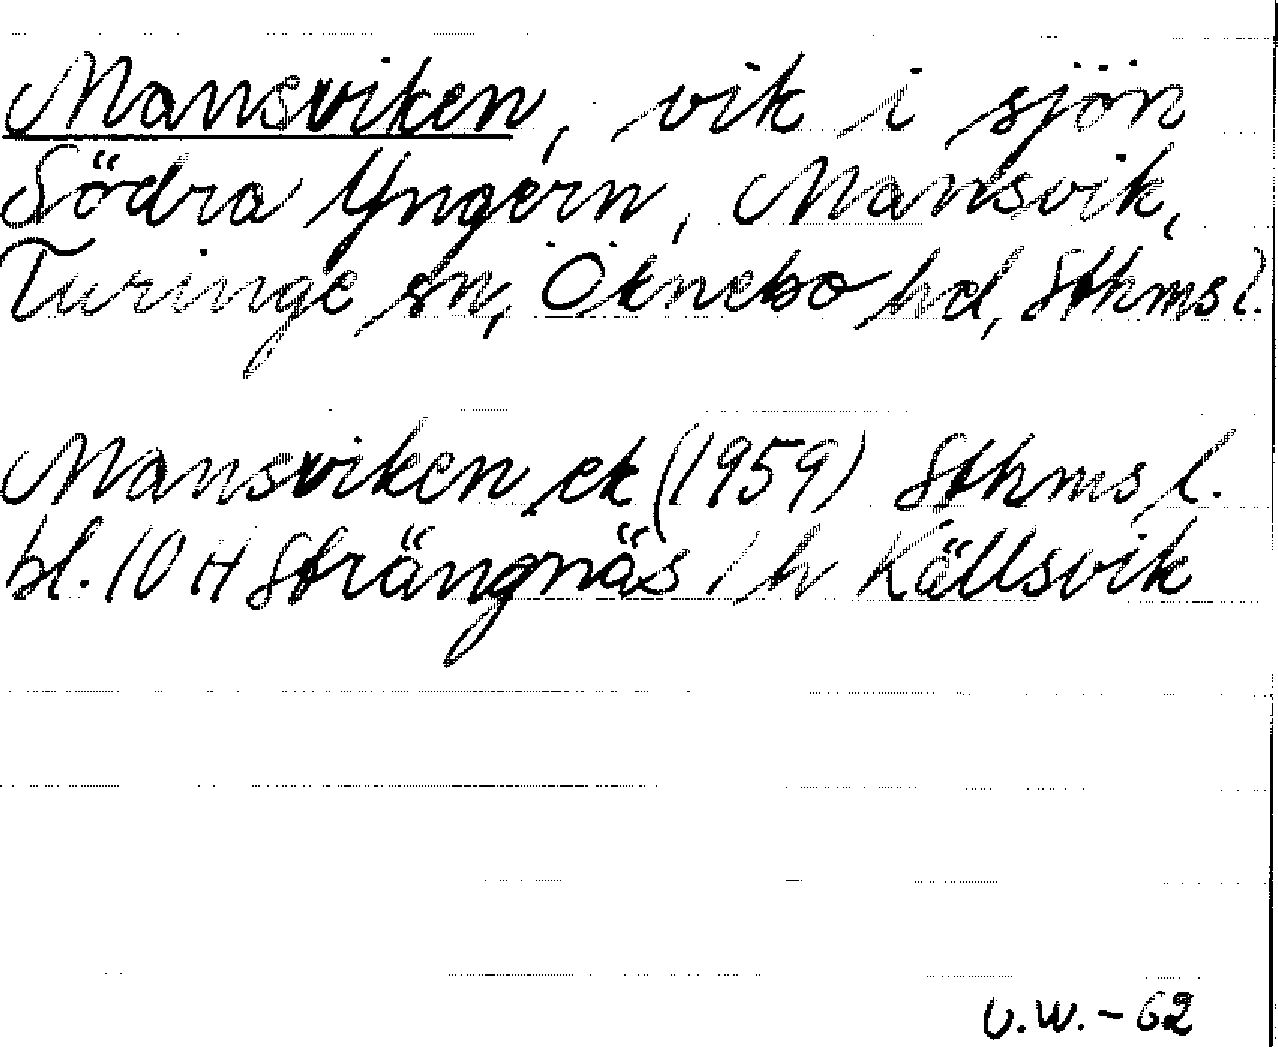 Mansviken, vik i sjön
Södra Yngern, Mansvik,
Turinge sn, Öknebo hd, Sthms l.
Mansviken ek (1959) Sthms l.
bl. 10 H Strängnäs / h Källsvik
U.W. - 62